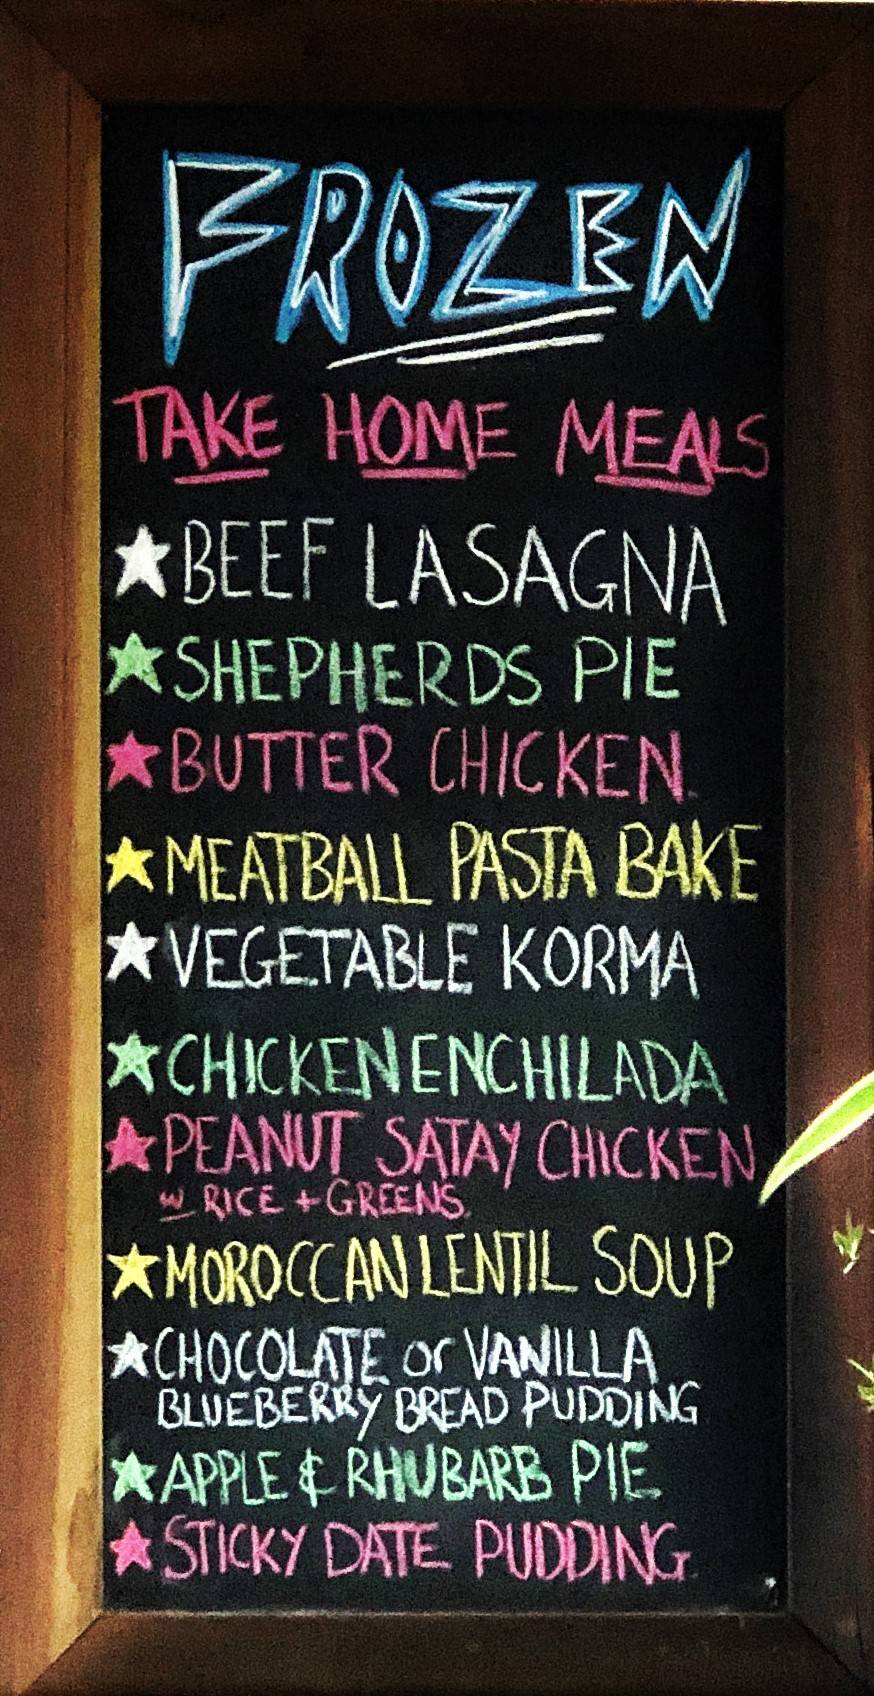 FROZEN
TAKE HOME MEALS
★ BEEF LASAGNA
★ SHEPHERDS PIE
★ BUTTER CHICKEN
★ MEATBALL PASTA BAKE
★ VEGETABLE KORMA
★ CHICKEN ENCHILADA
★ PEANUT SATAY CHICKEN
w RICE + GREENS
★ MOROCCAN LENTIL SOUP
★ CHOCOLATE or VANILLA
BLUEBERRY BREAD PUDDING
★ APPLE & RHUBARB PIE
★ STICKY DATE PUDDING